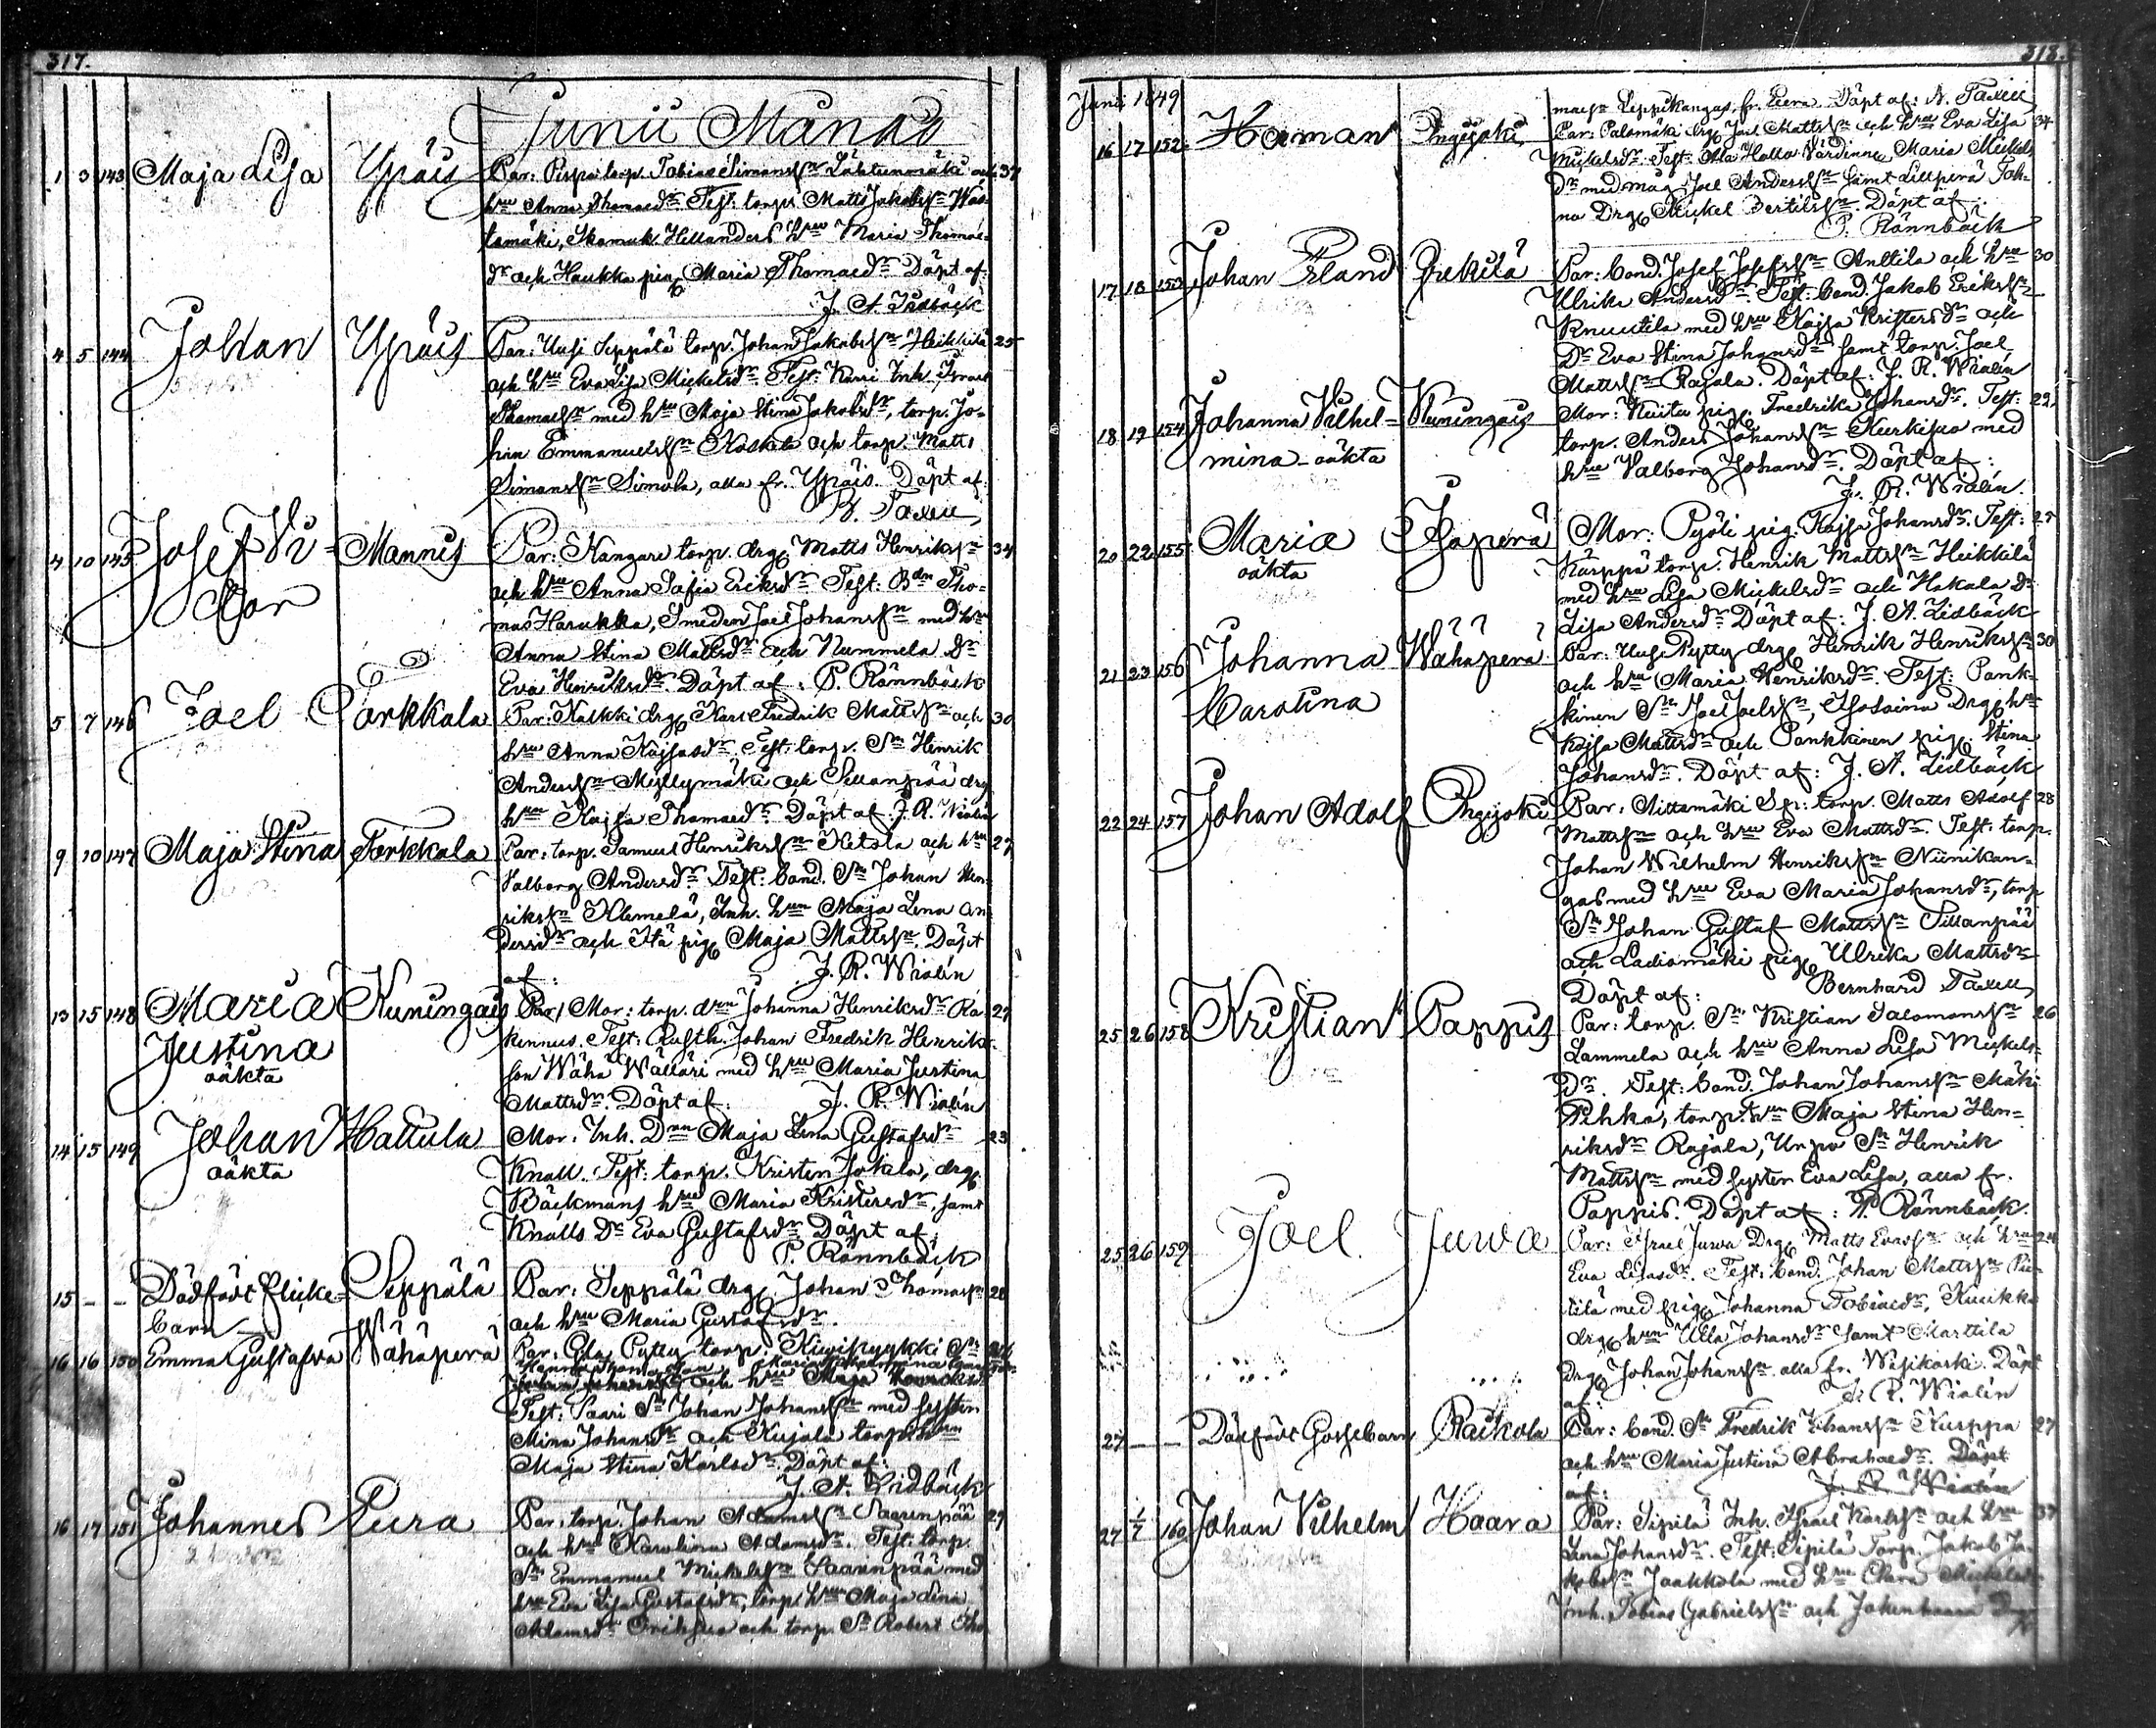 317.
Junii Månad
1 3 143 Maja Lisa Ypäis Par: Pispa torp. Tobias Simonsſn Lähteenmäki och 37
hru Anna Thomaedr Test: torp. Matts Jakobsſn Wäs-
tamäki, Skomak. Hellanders hru Maria Thomae-
dr och Haukka pig. Maria Thomaedr Döpt af:
J. A. Lidbäck
4 5 144 Johan Ypäis Par: Uusi Seppälä torp. Johan Jakobsſn Heikkilä 25
och hru Eva Lisa Mickelsdr Test: Karri Inh. Israel
Thomaesſn med hru Maja Stina Jakobsdr, torp. Jo-
han Emmanuelsſn Koskela och torp. Matts
Simonsſn Simola, alla fr. Ypäis. Döpt af:
B. Taxell
4 10 145 Josef Vi- Mannis Par: Kangare torp. drg. Matts Henriksſn 34
ctor och hru Anna Sofia Eriksdr Test: Bdn Tho-
mas Harukka, Smeden Joel Johansſn med hru
Anna Stina Mattsdr och Nummela Dr
Eva Henriksdr. Döpt af: P. Rönnbäck
5 7 146 Joel Torkkala Par: Kaskki drg. Karl Fredrik Mattsſn och 30
hru Anna Kajsasdr. Test: torp. Sn Henrik
Andersſn Myllymäki och Sillanpää drg.
hru Kajsa Thomaedr Döpt af J. R. Wialén
9 10 147 Maja Stina Torkkala Par: torp. Samuel Henriksſn Ketola och hru 27
Valborg Andersdr. Test: bond. Sn Johan Hen-
riksſn Klemelä, Inh. hru Maja Lena An-
dersdr och Itä pig. Maja Mattsſn. Döpt
af: J. R. Wialén
13 15 148 Maria Kuningais Par, Mor: torp. drn Johanna Henriksdr Ra- 27
Justina kennus. Test: Rusth. Johan Fredrik Henrik-
oäkta son Wäha Wälläri med hru Maria Justina
Mattsdr. Döpt af: J. R. Wialén
14 15 149 Johan Hattula Mor: Inh. Drn Maja Lena Gustafsdr 23
oäkta Knall. Test: torp. Kristen Jokela, drg.
Bäckmans hru Maria Kristersdr, samt
Knalls Dr Eva Gustafsdr Döpt af:
P. Rönnbäck
15 - - Dödfödt flicke- Seppälä Par: Seppälä drg. Johan Thomasſn 28
barn och hru Maria Gustafsdr.
16 16 150 Emma Gustafva Wähäperä Par: Pytty torp. Kiwipyykki Sn
och hru Maja
Test: Saari Sn Johan Johansſn med syster
Mina Johansdr och Kujala torp. hru
Maja Stina Karlsdr Döpt af:
J. A. Lidbäck
16 17 151 Johannes Peura Par: torp. Johan Adamsſn Saarenpää 29
och hru Karolina Adamsdr. Test: torp.
Sn Emmanuel Mickelsſn Saarenpää med
hru Eva Lisa Gustafsdr, torp. hru Maja Lena
Adamsdr Orihpää och torp. Sn Robert Tho-
318.
Junii 1849
maesſn Leppikangas, fr. Peura. Döpt af: B. Taxell
16 17 152 Herman Yngisjoki Par: Palomäki drg. Joel Mattsſn och hru Eva Lisa 34
Mickelsdr. Test: Ala Hollo Värdinne Maria Mickels-
dr med måg Joel Andersſn samt Lillperä Joh-
na Drg. Mickel Bertilsſn. Döpt af:
P. Rönnbäck
17 18 153 Johan Erland Yrekilä Par: bond. Josef Josefsſn Anttila och hru 30
Ulrika Andersdr Test: bond. Jakob Eriksſn
Knuutila med hru Kajsa Kristersdr och
Dr Eva Stina Johansdr samt torp. Joel
Mattsſn Rajala. Döpt af: J. R. Wialén
18 19 154 Johanna Vilhel- Kuningais Mor: Kuitu pig. Fredrika Johansdr. Test: 22
mina - oäkta torp. Anders Johansſn Kurkipa med
hru Valborg Johansdr. Döpt af:
J. R. Wialén.
20 22 155 Maria Isoperä Mor: Pyöli pig. Kajsa Johansdr. Test: 27
oäkta Karppa torp. Henrik Mattsſn Heikkilä
med hru Lisa Mickelsdr och Hakala Dr
Lisa Andersdr Döpt af: J. A. Lidbäck
21 23 156 Johanna Wähäperä Par: Uusi Pytty drg. Henrik Henriksſn 30
Carolina och hru Maria Henriksdr. Test: Pank-
kinen Sn Joel Joelsſn, Isotaina Drg. hru
Kajsa Mattsdr och Pankkinen pig. Stina
Johansdr. Döpt af: J. A. Lidbäck
22 24 157 Johan Adolf Yngisjoki Par: Niittamäki Sp: torp. Matts Adolf 28
Mattsſn och hru Eva Mattsdr. Test: torp.
Johan Wilhelm Henriksſn Niinikan-
gas med hru Eva Maria Johansdr, torp
Sn Johan Gustaf Mattsſn Sillanpää
och Ladiamäki pig. Ulrika Mattsdr
Döpt af: Bernhard Taxell
25 26 158 Kristian Pappis Par: torp. Sn Kristian Salomonsſn 26
Lammela och hru Anna Lisa Mickels-
dr. Test: bond. Johan Johansſn Mäki
Pihka, torp. hru Maja Stina Hen-
riksdr Rajala, Unpo Sn Henrik
Mattsſn med syster Eva Lisa, alla fr.
Pappis. Döpt af: P. Rönnbäck.
25 26 159 Joel Juwa Par: Israel Juwa Drg. Matts Evasſn och hru 24
Eva Lisasdr. Test: bond. Johan Mattsſn Pie-
tilä med pig. Johanna Tobiaedr, Kuikka
drg. hru Ulla Johansdr samt Marttila
Drg. Johan Johansſn alla fr. Wäsikoski. Döpt
af: J. R. Wialén
27 - - Dödfödt Gossebarn Raikola Par: bond. Sn Fredrik Johansſn Kurppa 27
och hru Maria Justina Abrahaedr. Döpt
af: J. R. Wialén
27 1/7 160 Johan Vilhelm Haara Par: Sipilä Inh. Israel Karlsſn och hru 37
Lena Johansdr. Test: Sipilä Torp. Jakob Ja-
kobsſn Jaakkola med hru Clara Mickelsdr
Inh. Tobias Gabrielsſn och Jokenhaara